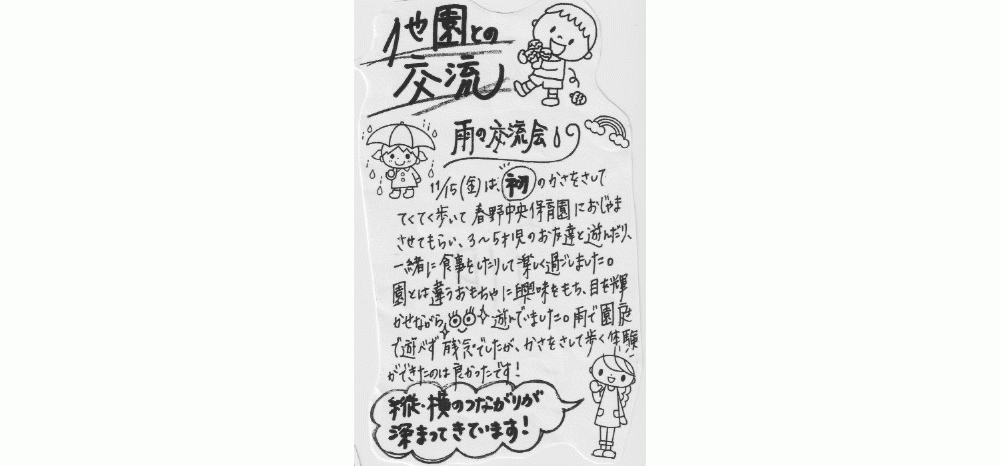 他園との
交流
雨の交流会
11/15(金)は、初のかさをさして
てくてく歩いて春野中央保育園におじゃま
させてもらい、3〜5才児のお友達と遊んだり、
一緒に食事をしたりして楽しく過ごしました。
園とは違うおもちゃに興味をもち、目を輝
かせながら遊んでいました。雨で園庭
で遊べず残念でしたが、かさをさして歩く体験
ができたのは良かったです!
縦・横のつながりが
深まってきています!